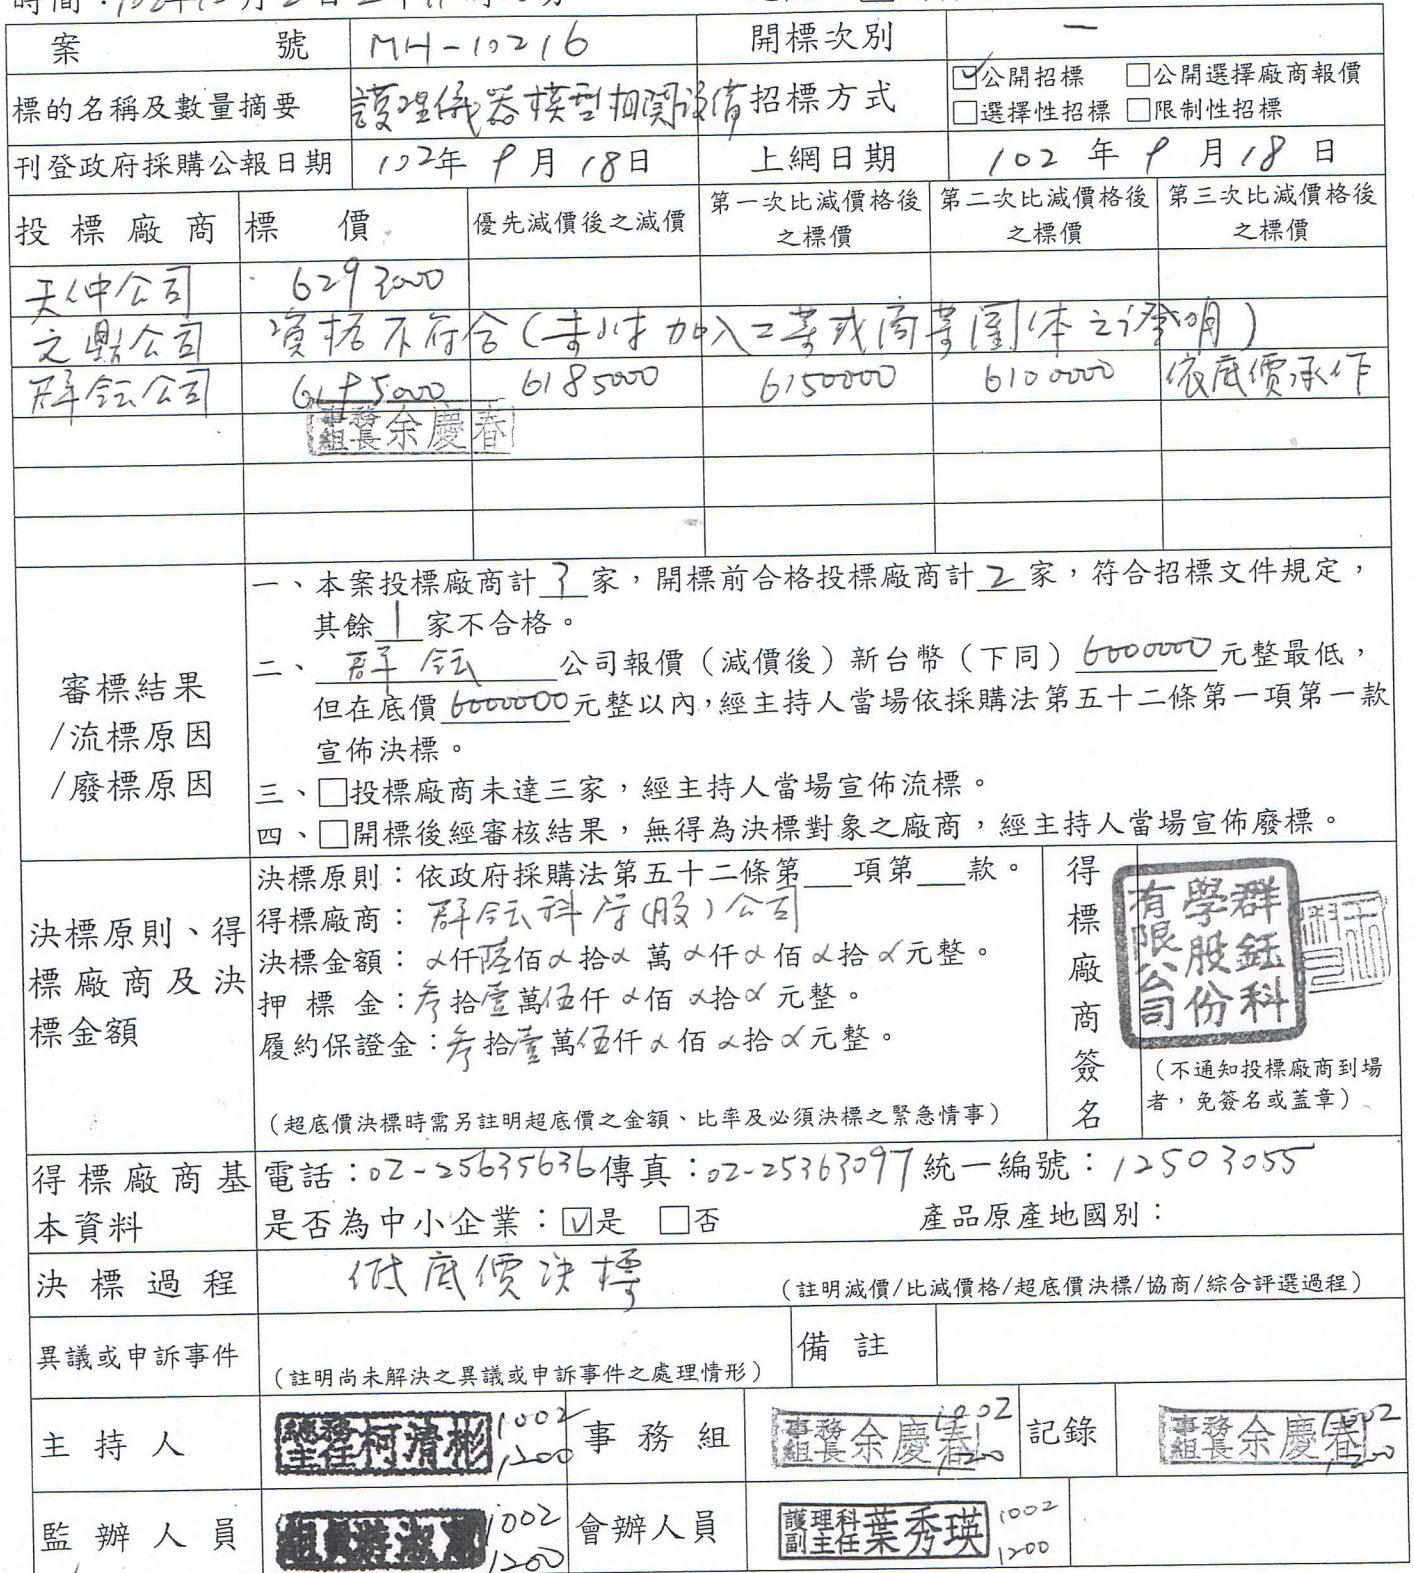 案號 MH-10216 開標次別 一
標的名稱及數量摘要 護理儀器模型相關設備 招標方式 ☑公開招標 □公開選擇廠商報價
□選擇性招標 □限制性招標
刊登政府採購公報日期 102年9月18日 上網日期 102年9月18日
投標廠商 標價 優先減價後之減價 第一次比減價格後之標價 第二次比減價格後之標價 第三次比減價格後之標價
天仲公司 6293000
文鼎公司 資格不符合(未附加入工業或商業團体之證明)
群鈺公司 6195000 6185000 6150000 6100000 依底價承作
事務組長余慶春
審標結果/流標原因/廢標原因
一、本案投標廠商計3家,開標前合格投標廠商計2家,符合招標文件規定,
其餘1家不合格。
二、群鈺公司報價(減價後)新台幣(下同)6000000元整最低,
但在底價6000000元整以內,經主持人當場依採購法第五十二條第一項第一款
宣佈決標。
三、□投標廠商未達三家,經主持人當場宣佈流標。
四、□開標後經審核結果,無得為決標對象之廠商,經主持人當場宣佈廢標。
決標原則、得標廠商及決標金額
決標原則:依政府採購法第五十二條第___項第___款。
得標廠商:群鈺科學(股)公司
決標金額:α仟陸佰α拾α萬α仟α佰α拾α元整。
押標金:參拾壹萬伍仟α佰α拾α元整。
履約保證金:參拾壹萬伍仟α佰α拾α元整。
(超底價決標時需另註明超底價之金額、比率及必須決標之緊急情事)
得標廠商簽名
群鈺科學股份有限公司
(不通知投標廠商到場者,免簽名或蓋章)
得標廠商基本資料
電話:02-25635636 傳真:02-25363097 統一編號:12503055
是否為中小企業:☑是 □否 產品原產地國別:
決標過程 低底價決標 (註明減價/比減價格/超底價決標/協商/綜合評選過程)
異議或申訴事件 (註明尚未解決之異議或申訴事件之處理情形) 備註
主持人 總務主任柯清彬 1002 1200 事務組 事務組長余慶春 1002 1200 記錄 事務組長余慶春 1002 1200
監辦人員 1002 1200 會辦人員 護理科副主任葉秀瑛 1002 1200